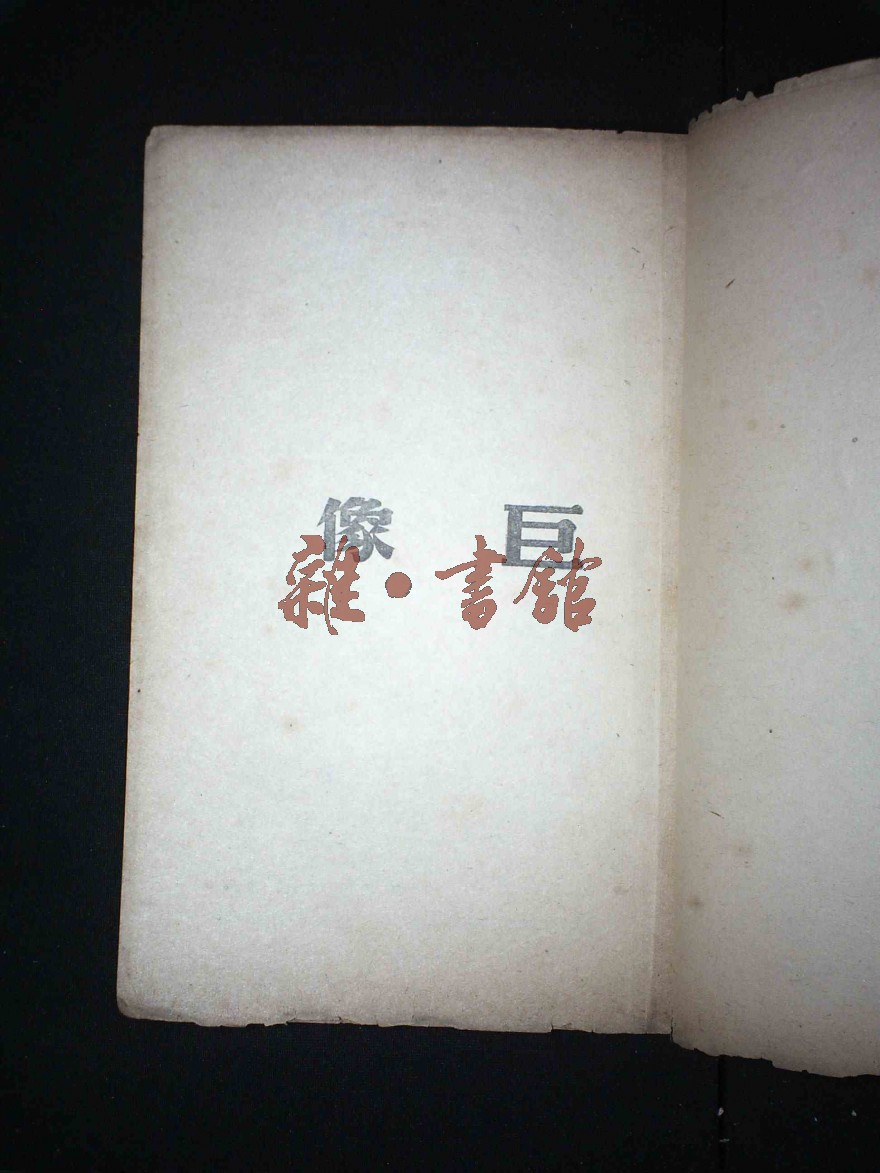 巨像
雜·書館